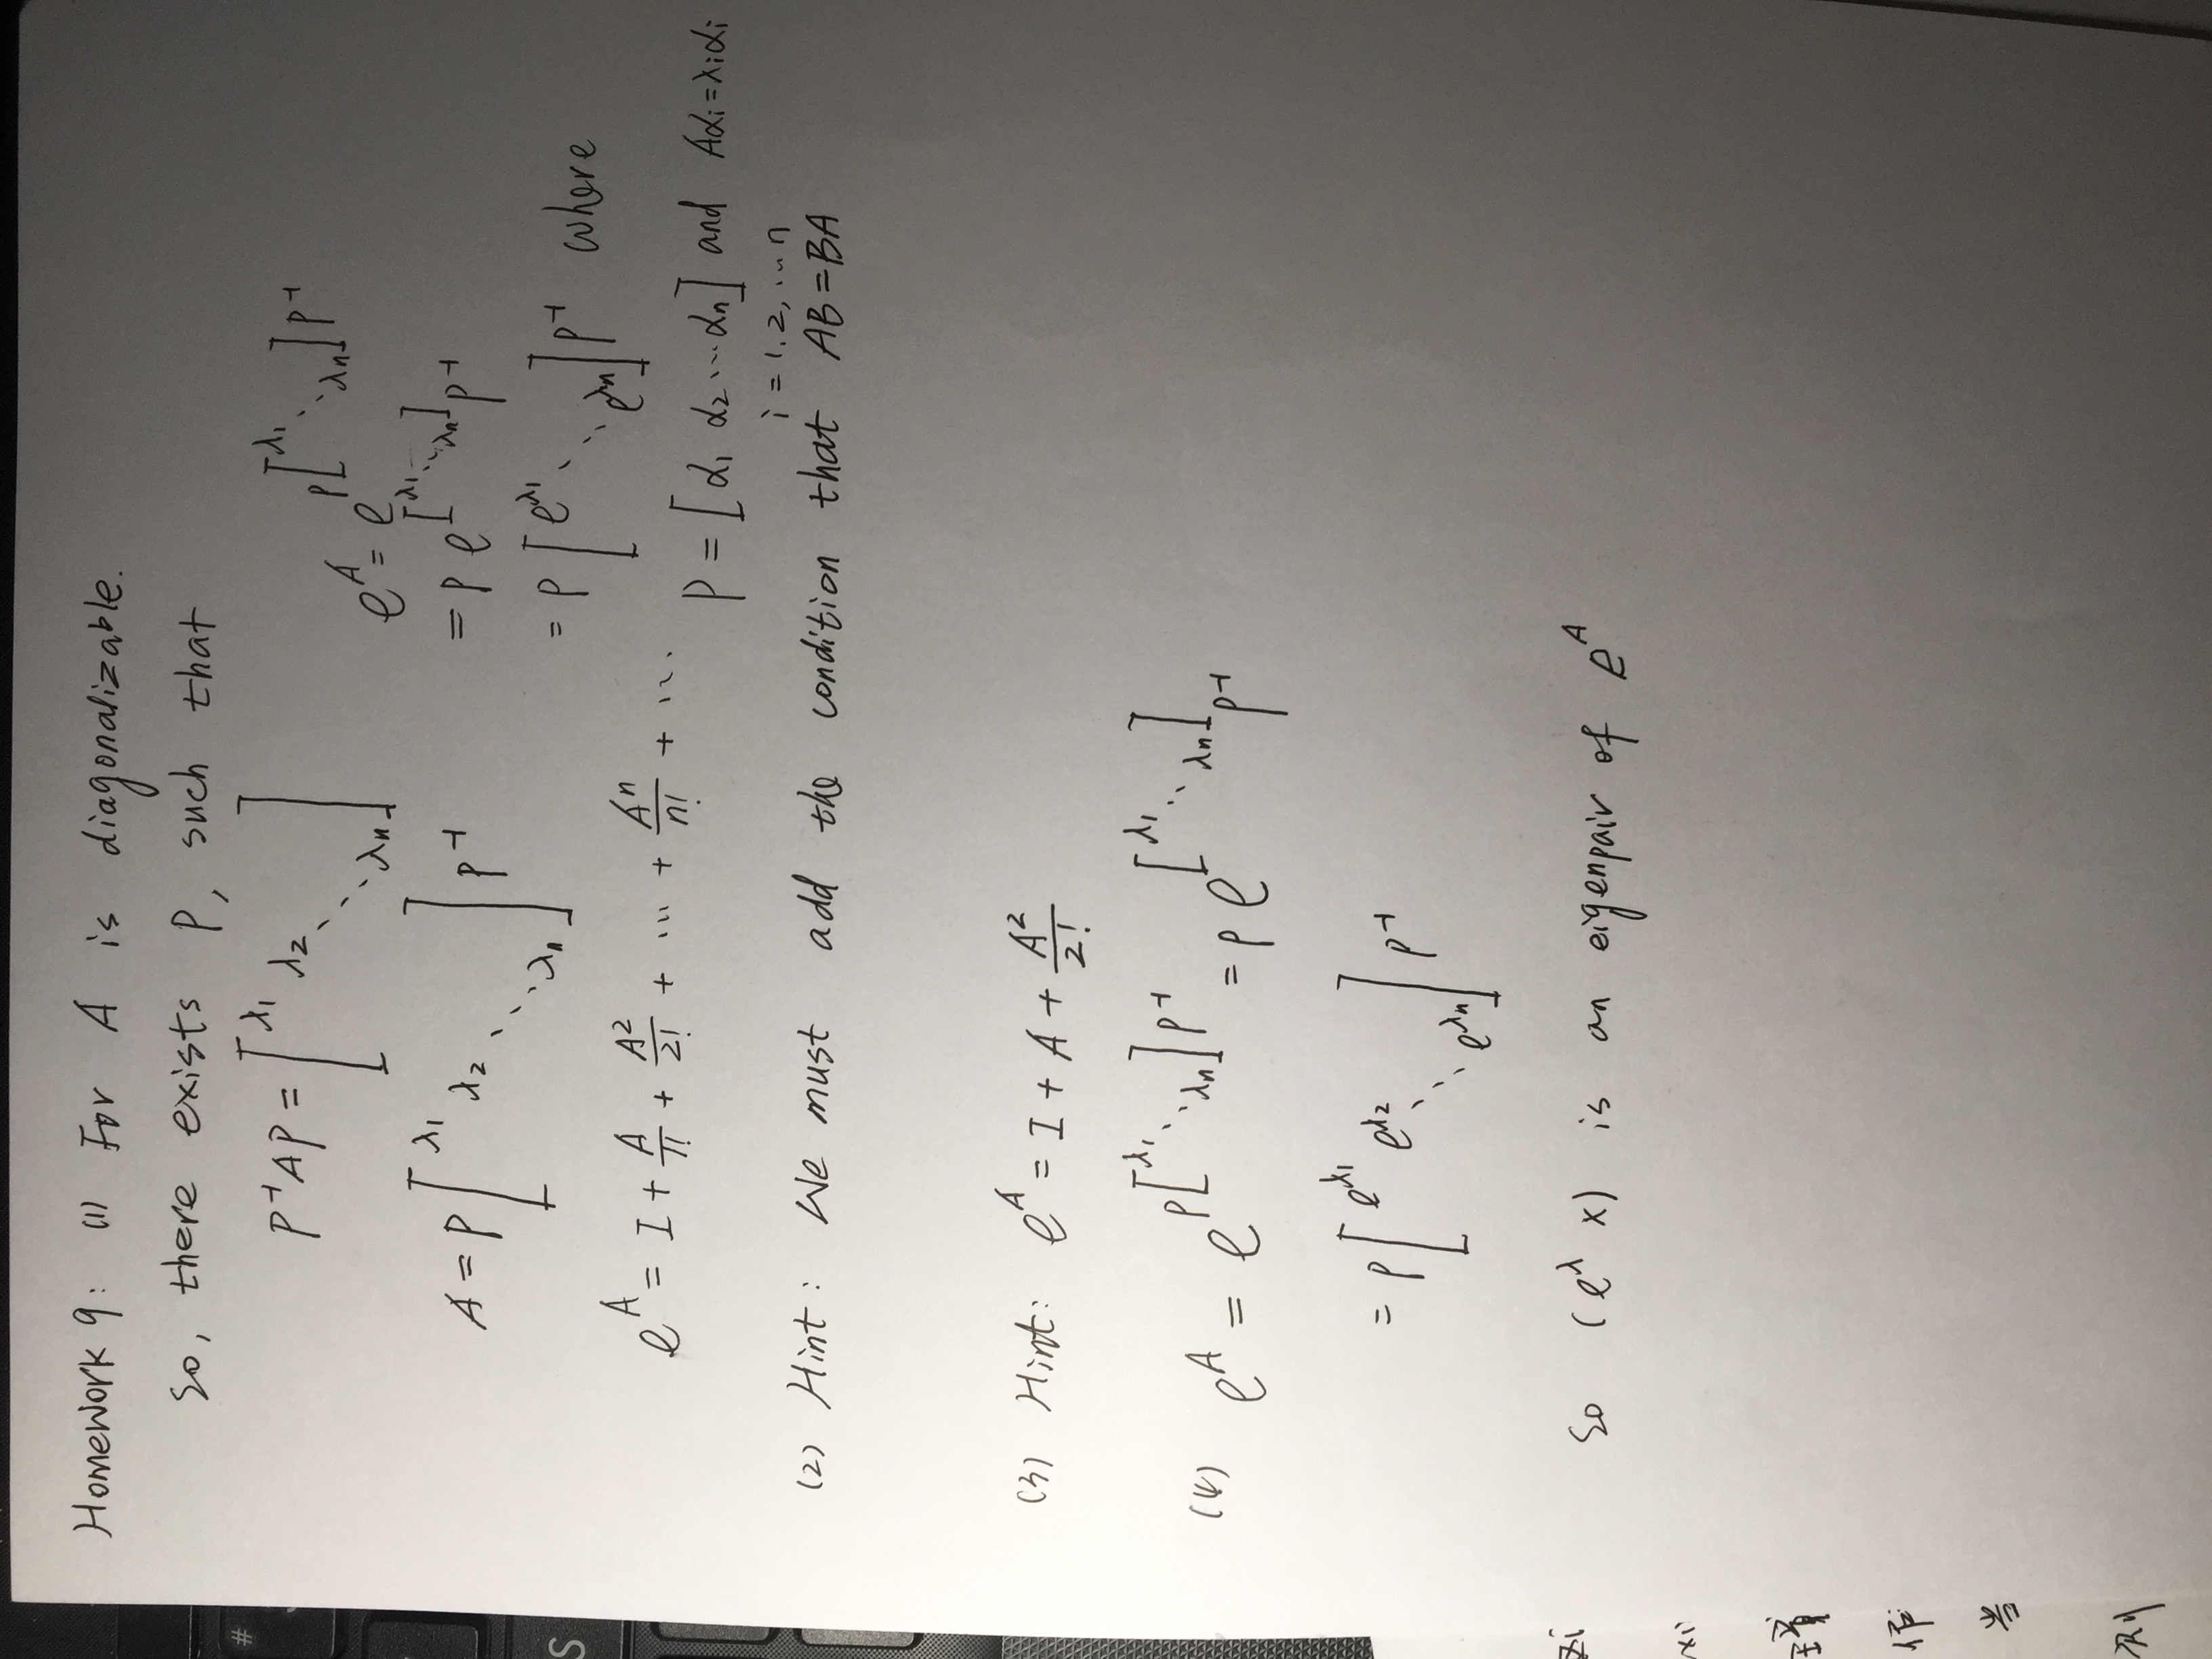 Homework 9: (1) For A is diagonalizable.
So, there exists P, such that
P⁻¹AP = [λ₁ λ₂ ⋱ λₙ]
A = P[λ₁ λ₂ ⋱ λₙ]P⁻¹
e^A = I + A/1! + A²/2! + ... + Aⁿ/n! + ...
e^A = e^{P[λ₁ ⋱ λₙ]P⁻¹}
= P e^{[λ₁ ⋱ λₙ]} P⁻¹
= P[e^{λ₁} ⋱ e^{λₙ}]P⁻¹ where
P = [α₁ α₂ ... αₙ] and Aαᵢ=λᵢαᵢ
i = 1.2, ... n
(2) Hint: We must add the condition that AB=BA
(3) Hint: e^A = I + A + A²/2!
(4) e^A = e^{P[λ₁ ⋱ λₙ]P⁻¹} = P e^{[λ₁ ⋱ λₙ]} P⁻¹
= P[e^{λ₁} e^{λ₂} ⋱ e^{λₙ}]P⁻¹
So (e^λ x) is an eigenpair of e^A
#
S
xi
作
当
则